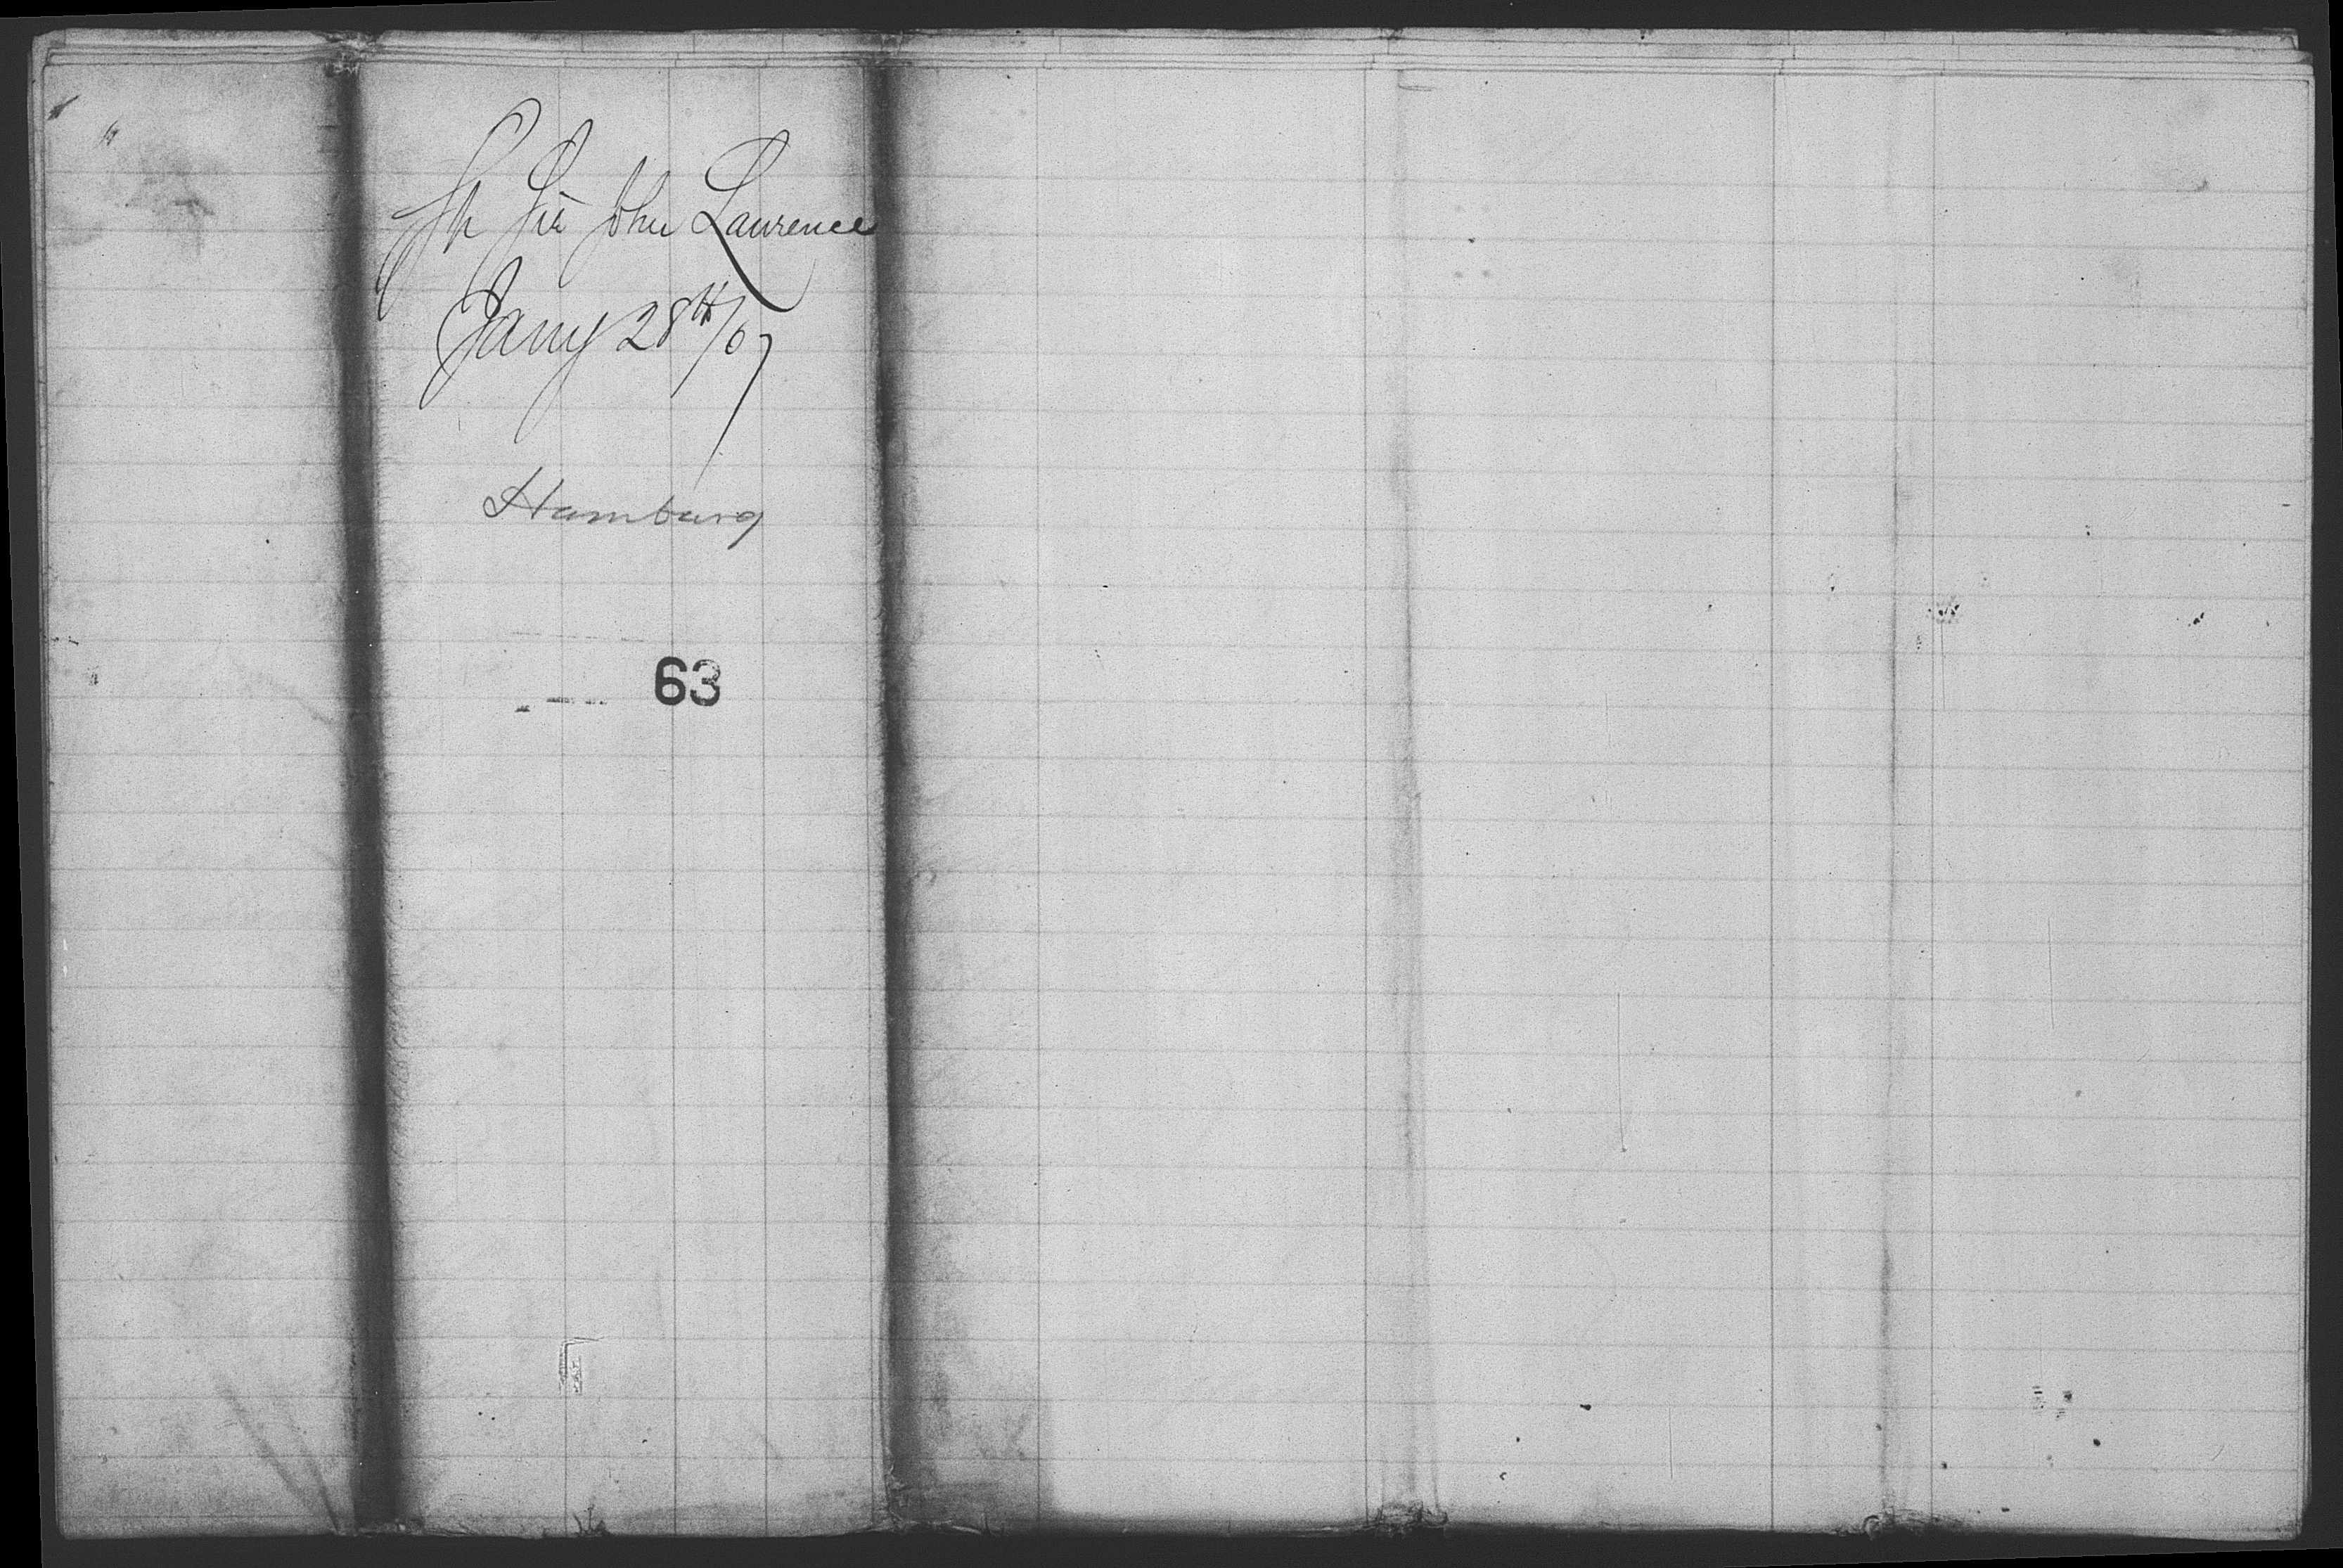 Sp Sir John Laurence
Jany 28th/67
Hamburg
63